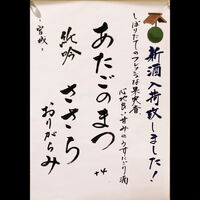 新酒入荷致しました！
しぼりたてのフレッシュな果実香
心地良い甘みのうすにごり酒
あたごのまつ +4
純吟 ささら
おりがらみ
・宮城・